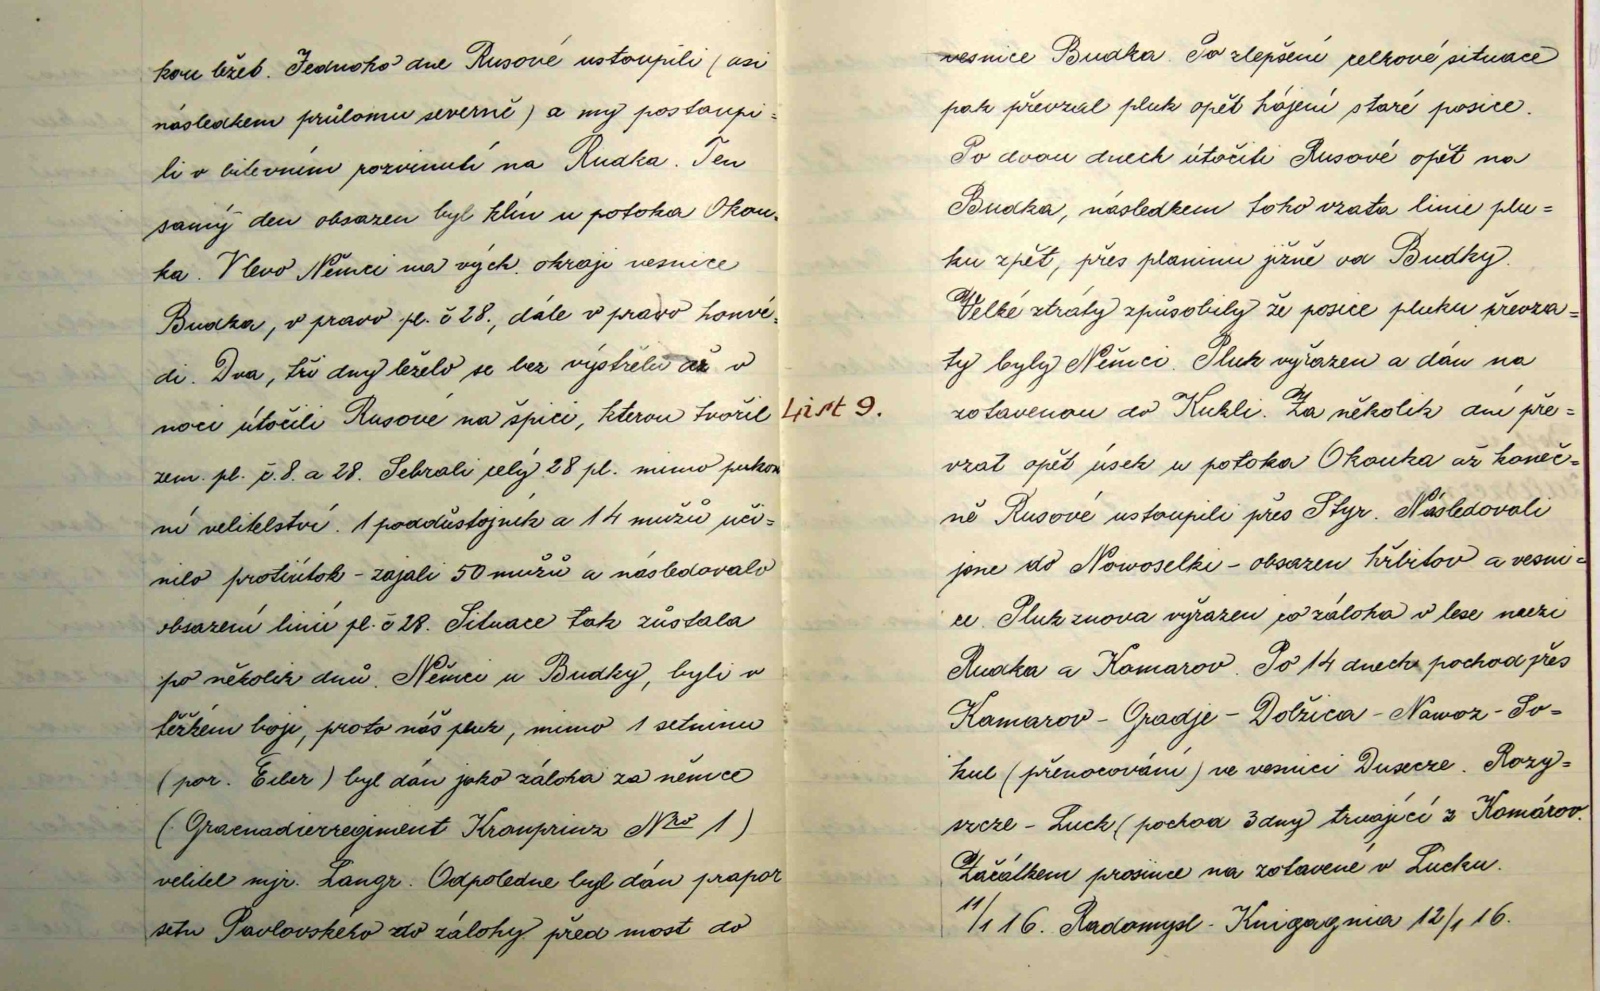 kou lžeb. Jednoho dne Rusové ustoupili (asi
následkem průlomu severně) a my postoupi=
li v bitevním rozvinutí na Rudka. Ten
samý den obsazen byl klín u potoka Okon=
ka. Vlevo Němci na vých. okraji vesnice
Budka, v pravo pl. č 28., dále v pravo honvé=
di. Dva, tři dny leželo se bez výstřelu až v
noci útočili Rusové na špici, kterou tvořil
zem. pl. č. 8. a 28. Sebrali celý 28 pl. mimo plukov
ní velitelství. 1 poddůstojník a 14 mužů uči=
nilo protiútok – zajali 50 mužů a následovalo
obsazení linií pl. č 28. Situace tak zůstala
po několik dnů. Němci u Budky, byli v
těžkém boji, proto náš pluk, mimo 1 setninu
(por. Eiler) byl dán jako záloha za němce
(Graenadierregiment Kronprinz Nro 1)
velitel mjr. Langr. Odpoledne byl dán prapor
setn Pavlovského do zálohy před most do
List 9.
vesnice Budka. Po zlepšení celkové situace
pak převzal pluk opět hájení staré posice.
Po dvou dnech útočili Rusové opět na
Budka, následkem toho vzata linie plu=
ku zpět, přes planinu jižně od Budky.
Velké ztráty způsobily že posice pluku převza=
ty byly Němci. Pluk vyřazen a dán na
zotavenou do Kukli. Za několik dní pře=
vzat opět úsek u potoka Okonka až koneč=
ně Rusové ustoupili přes Styr. Následovali
jsme do Nowoselki – obsazen hřbitov a vesni=
ce. Pluk znova vyřazen co záloha v lese mezi
Rudka a Komarov. Po 14 dnech pochod přes
Kamarov – Gradje – Dolžica – Nawoz – So=
kul (přenocování) ve vesnici Dusecze. Rozy=
szcze – Luck (pochod 3 dny trvající z Komárov.
Začátkem prosince na zotavené v Lucku.
11/1 16. Radomysl - Knigagnia 12/1 16.